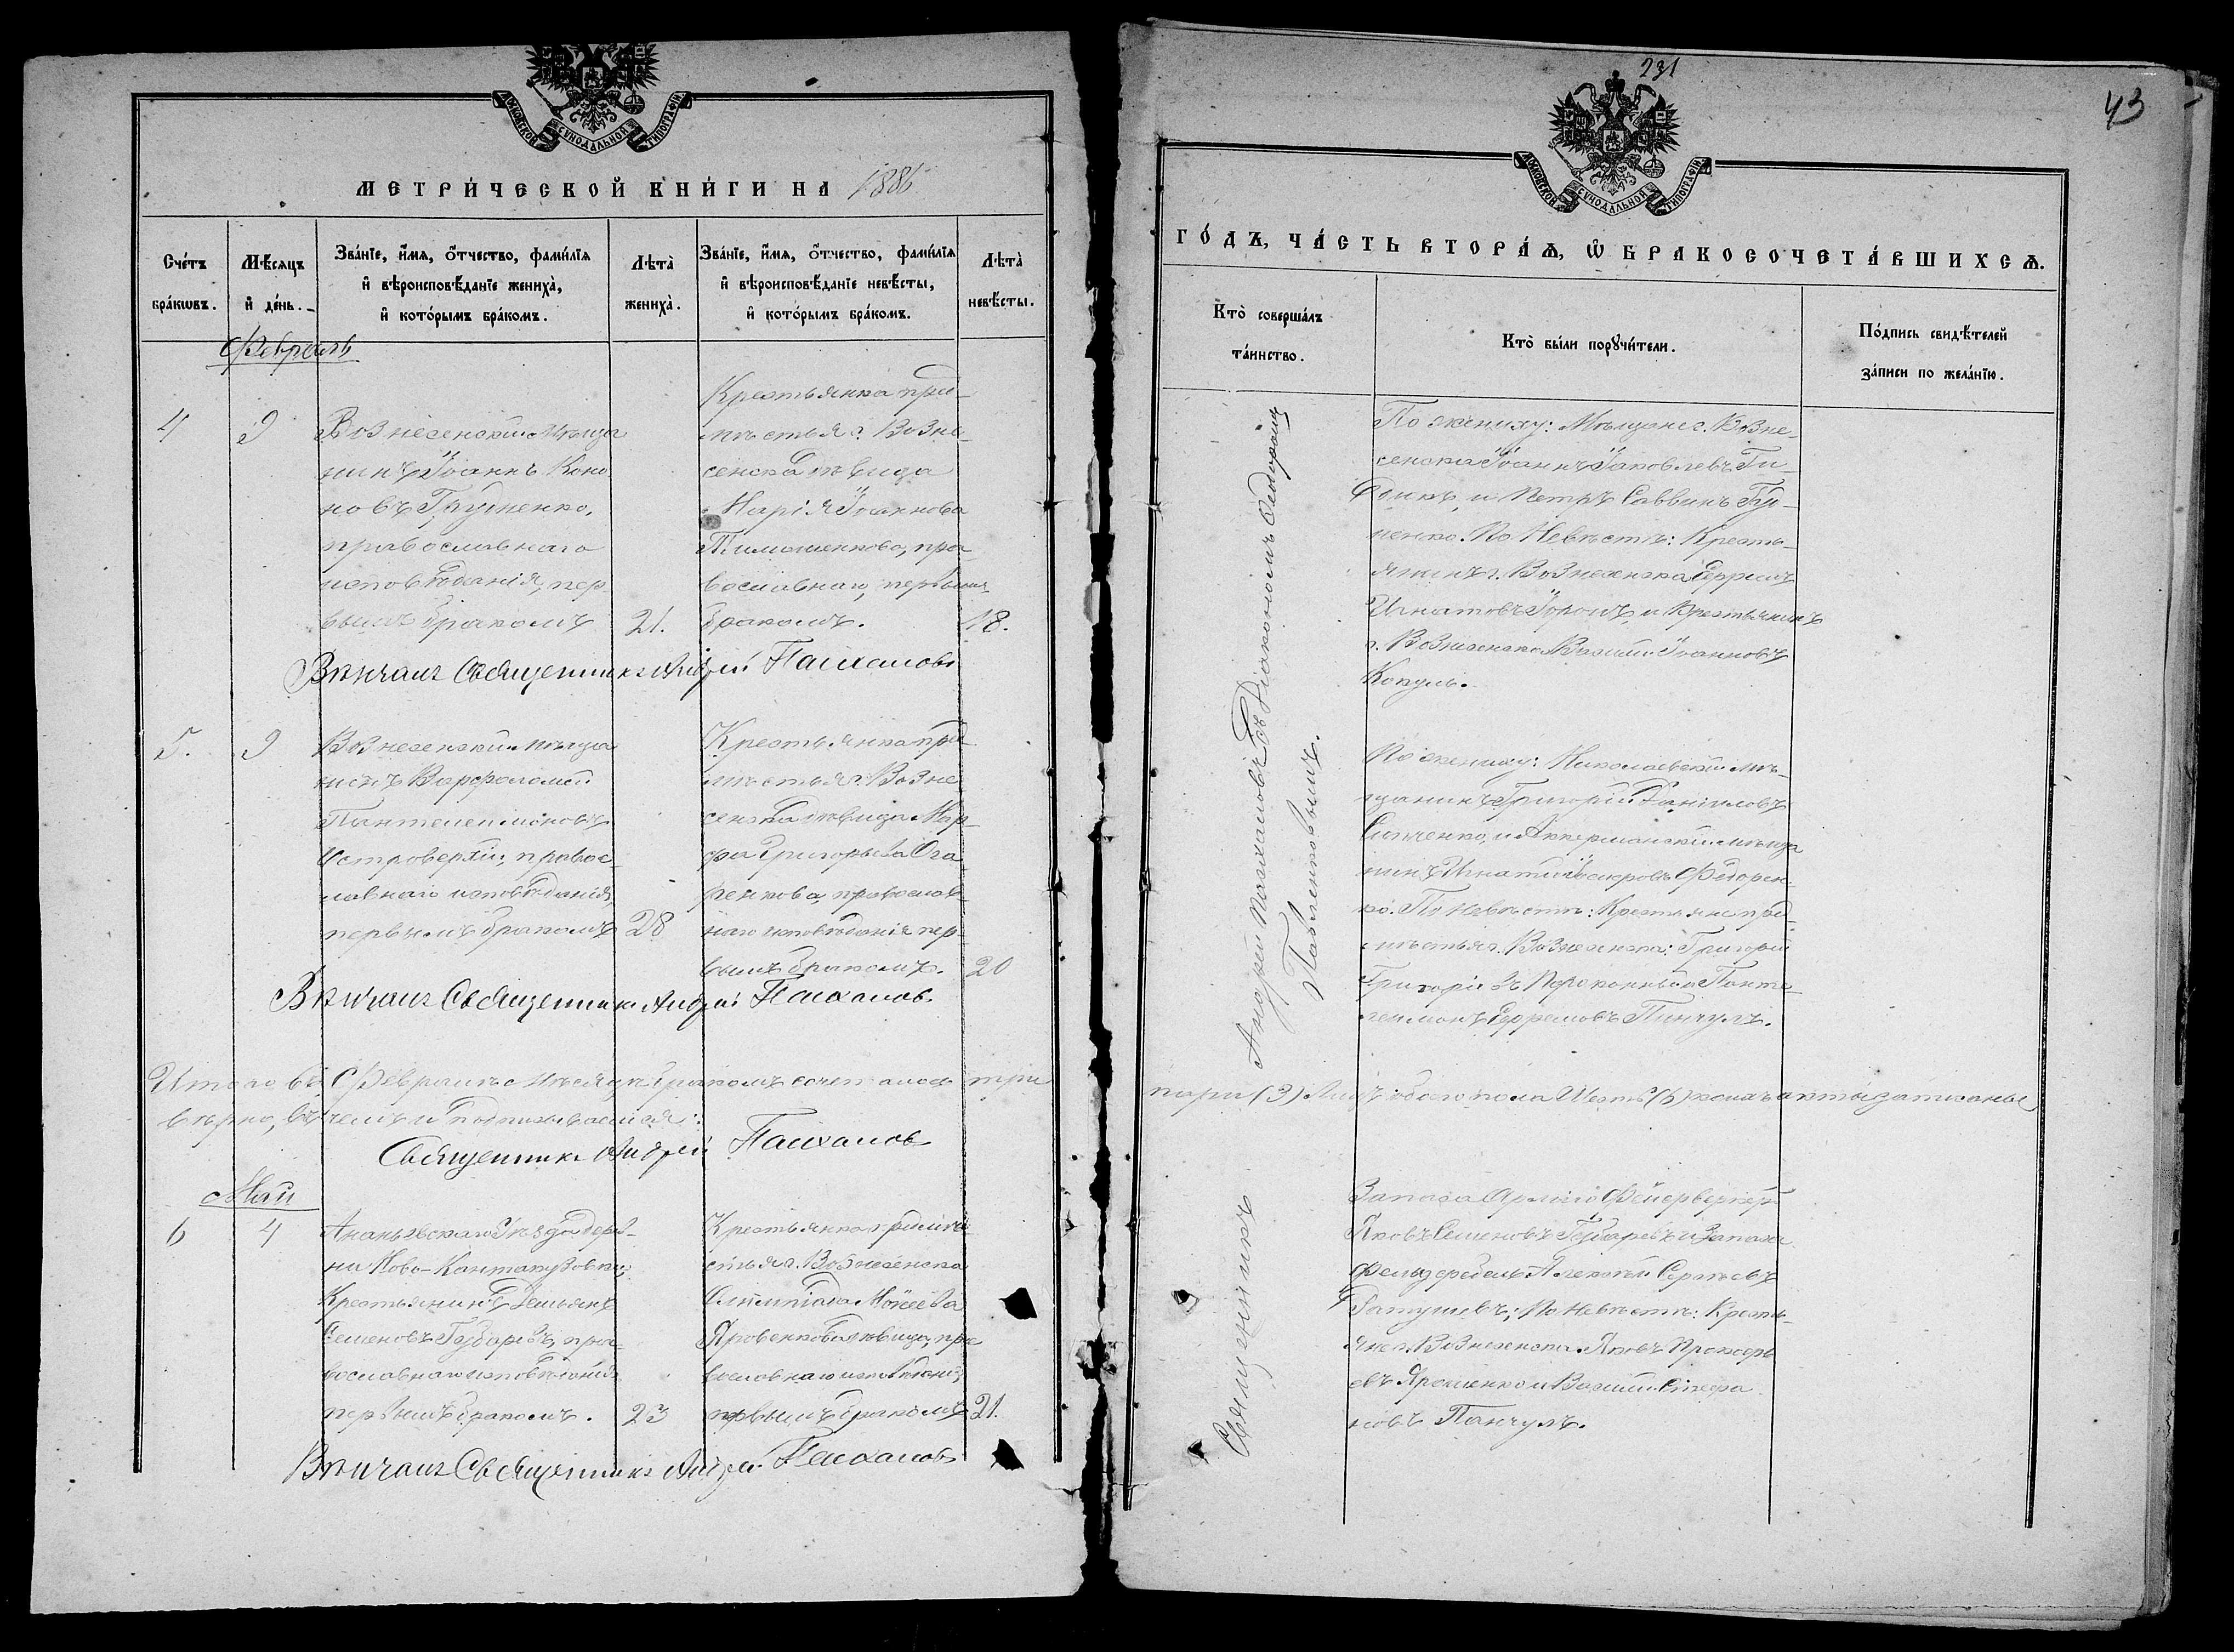 МОСКОВСКОЙ СѴНОДАЛЬНОЙ ТИПОГРАФІИ
МЕТРИ́ЧЕСКОЙ КНИ́ГИ НА 1886
Сче́тъ бра́кѡвъ.
Мѣ́сяцъ и҆ де́нь.
Зва́нїе, и҆́мя, ѻ҆́тчество, фами́лїя
и҆ вѣроисповѣ́данїе жениха̀,
и҆ кото́рымъ бра́комъ.
Лѣта̀ жениха̀.
Зва́нїе, и҆́мя, ѻ҆́тчество, фами́лїя
и҆ вѣроисповѣ́данїе невѣ́сты,
и҆ кото́рымъ бра́комъ.
Лѣта̀ невѣ́сты.
Февраль
4
9
Вознесенскій мѣща
нинъ Іоаннъ Коно
новъ
православнаго
исповѣданія, пер
вымъ бракомъ
21.
Крестьянка пред-
мѣстья г. Возне-
сенска дѣвица
Марія Іоаннова
Тимошенкова, пра
вославнаго, первымъ
бракомъ.
18.
Вѣнчалъ Священникъ Андрей Пасхаловъ
5.
9
Вознесенскій мѣща
нинъ Варфоломей
Пантелеимоновъ
Островерхій, правос-
лавнаго исповѣданія,
первымъ бракомъ
28
Крестьянка пред
мѣстья г. Возне
сенска дѣвица Мар-
фа Григорьева
православ-
наго исповѣданія пер-
вымъ бракомъ.
20
Вѣнчалъ Священникъ Андрей Пасхаловъ
Итого въ Февралѣ мѣсяцѣ бракомъ сочеталось три
вѣрно, въ чемъ и подписываемся:
Священникъ Андрей Пасхаловъ
Май
6
4
Ананьевскаго уѣзда дерев-
ни Ново-Кантакузовки,
Крестьянинъ Демьянъ
Семеновъ Гозбаревъ, пра-
вославнаго исповѣданія
первымъ бракомъ.
23
Крестьянка предмѣ
стья г. Вознесенска
Олимпіада Моисеева
дѣвица, пра
вославнаго исповѣданія,
первымъ бракомъ
21.
Вѣнчалъ Священникъ Андрей Пасхаловъ
231
43
МОСКОВСКОЙ СѴНОДАЛЬНОЙ ТИПОГРАФІИ
ГО́ДЪ, ЧА́СТЬ ВТОРА́Ѧ, Ѡ҆ БРАКОСОЧЕТА́ВШИХСѦ.
Кто̀ соверша́лъ та́инство.
Кто̀ бы́ли порꙋчи́тели.
По́дпись свидѣ́телей за́писи по жела́нїю.
Андрей Пасхаловъ съ Діакономъ Ѳеодоромъ
Павленковымъ.
По жениху: Мѣщане г. Возне-
сенска Іоаннъ Іаковлевъ
и Петръ Саввинъ
По Невѣстѣ: Кресть-
янинъ г. Вознесенска Ефремъ
Игнатовъ и Крестьянинъ
г. Вознесенска Василій Іоанновъ
По жениху: Николаевскій мѣ-
щанинъ Григорій Даніиловъ
и Аккерманскій мѣща
нинъ Игнатій Федорен-
ко. По Невѣстѣ: Крестьяне пред-
мѣстья г. Вознесенска: Григорій
Григоріевъ и Панте-
леимонъ Ефремовъ Пинчулъ.
пары (3) Лицъ обоего пола Шесть (6) коихъ акты записаны
Священникъ
Запаса Арміи Фейерверкеръ
Яковъ Семеновъ Гозбаревъ и Запаса
фельдфебель Алексѣй
По Невѣстѣ: Кресть-
яне г. Вознесенска Яковъ Прокофь
евъ Ярошенко и Василій Стефа
новъ Панчулъ.